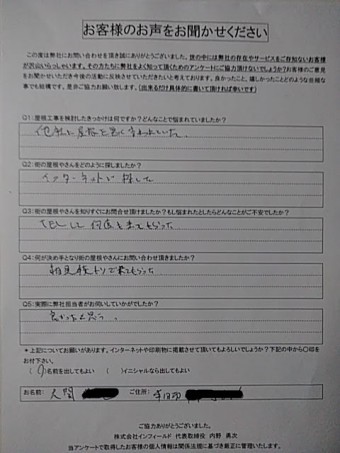 お客様のお声をお聞かせください
この度は弊社にお問い合わせを頂き誠にありがとうございました。世の中には弊社の存在やサービスをご存知ないお客様
が沢山いらっしゃいます。その方たちに弊社をよく知って頂くためのアンケートにご協力頂けないでしょうか?お客様のご意見
をお聞かせいただき今後の活動に反映させていただきたいと考えております。良かったこと、嬉しかったことどのような些細な
事でも結構です。是非ご協力お願い致します。(出来るだけ具体的に書いて頂ければ幸いです)
Q1:屋根工事を検討したきっかけは何ですか?どんなことで悩まれていましたか?
Q2:街の屋根やさんをどのように探しましたか?
インターネットで探した
Q3:街の屋根やさんを知りすぐにお問合せ頂けましたか?もし悩まれたとしたらどんなことがご不安でしたか?
TELして
Q4:何が決め手となり街の屋根やさんにお問い合わせ頂きましたか?
Q5:実際に弊社担当者がお伺いしていかがでしたか?
良かったと思う。
*上記についてお願いがあります。インターネットや印刷物に掲載させて頂いてもよろしいでしょうか?下記の中から○印を
お付け下さい。
( )名前を出してもよい ( )イニシャルなら出してもよい
お名前: ご住所:
ご協力ありがとうございました。
株式会社インフィールド 代表取締役 内野 勇次
当アンケートで取得したお客様の個人情報は関係法規に基づき厳正に管理いたします。